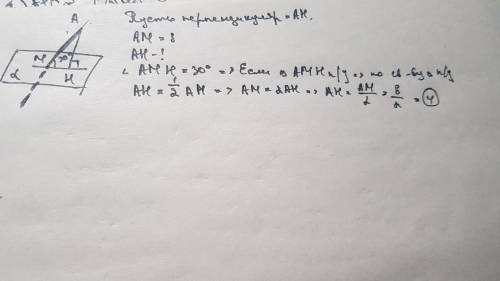 A
M 30°
α H
Пусть перпендикуляр = AH.
AM = 8
AH - ?
∠ AMH = 30° => Если в AMH п/у => по св-ву в п/у
AH = 1/2 AM => AM = 2AH => AH = AM/2 = 8/2 = 4